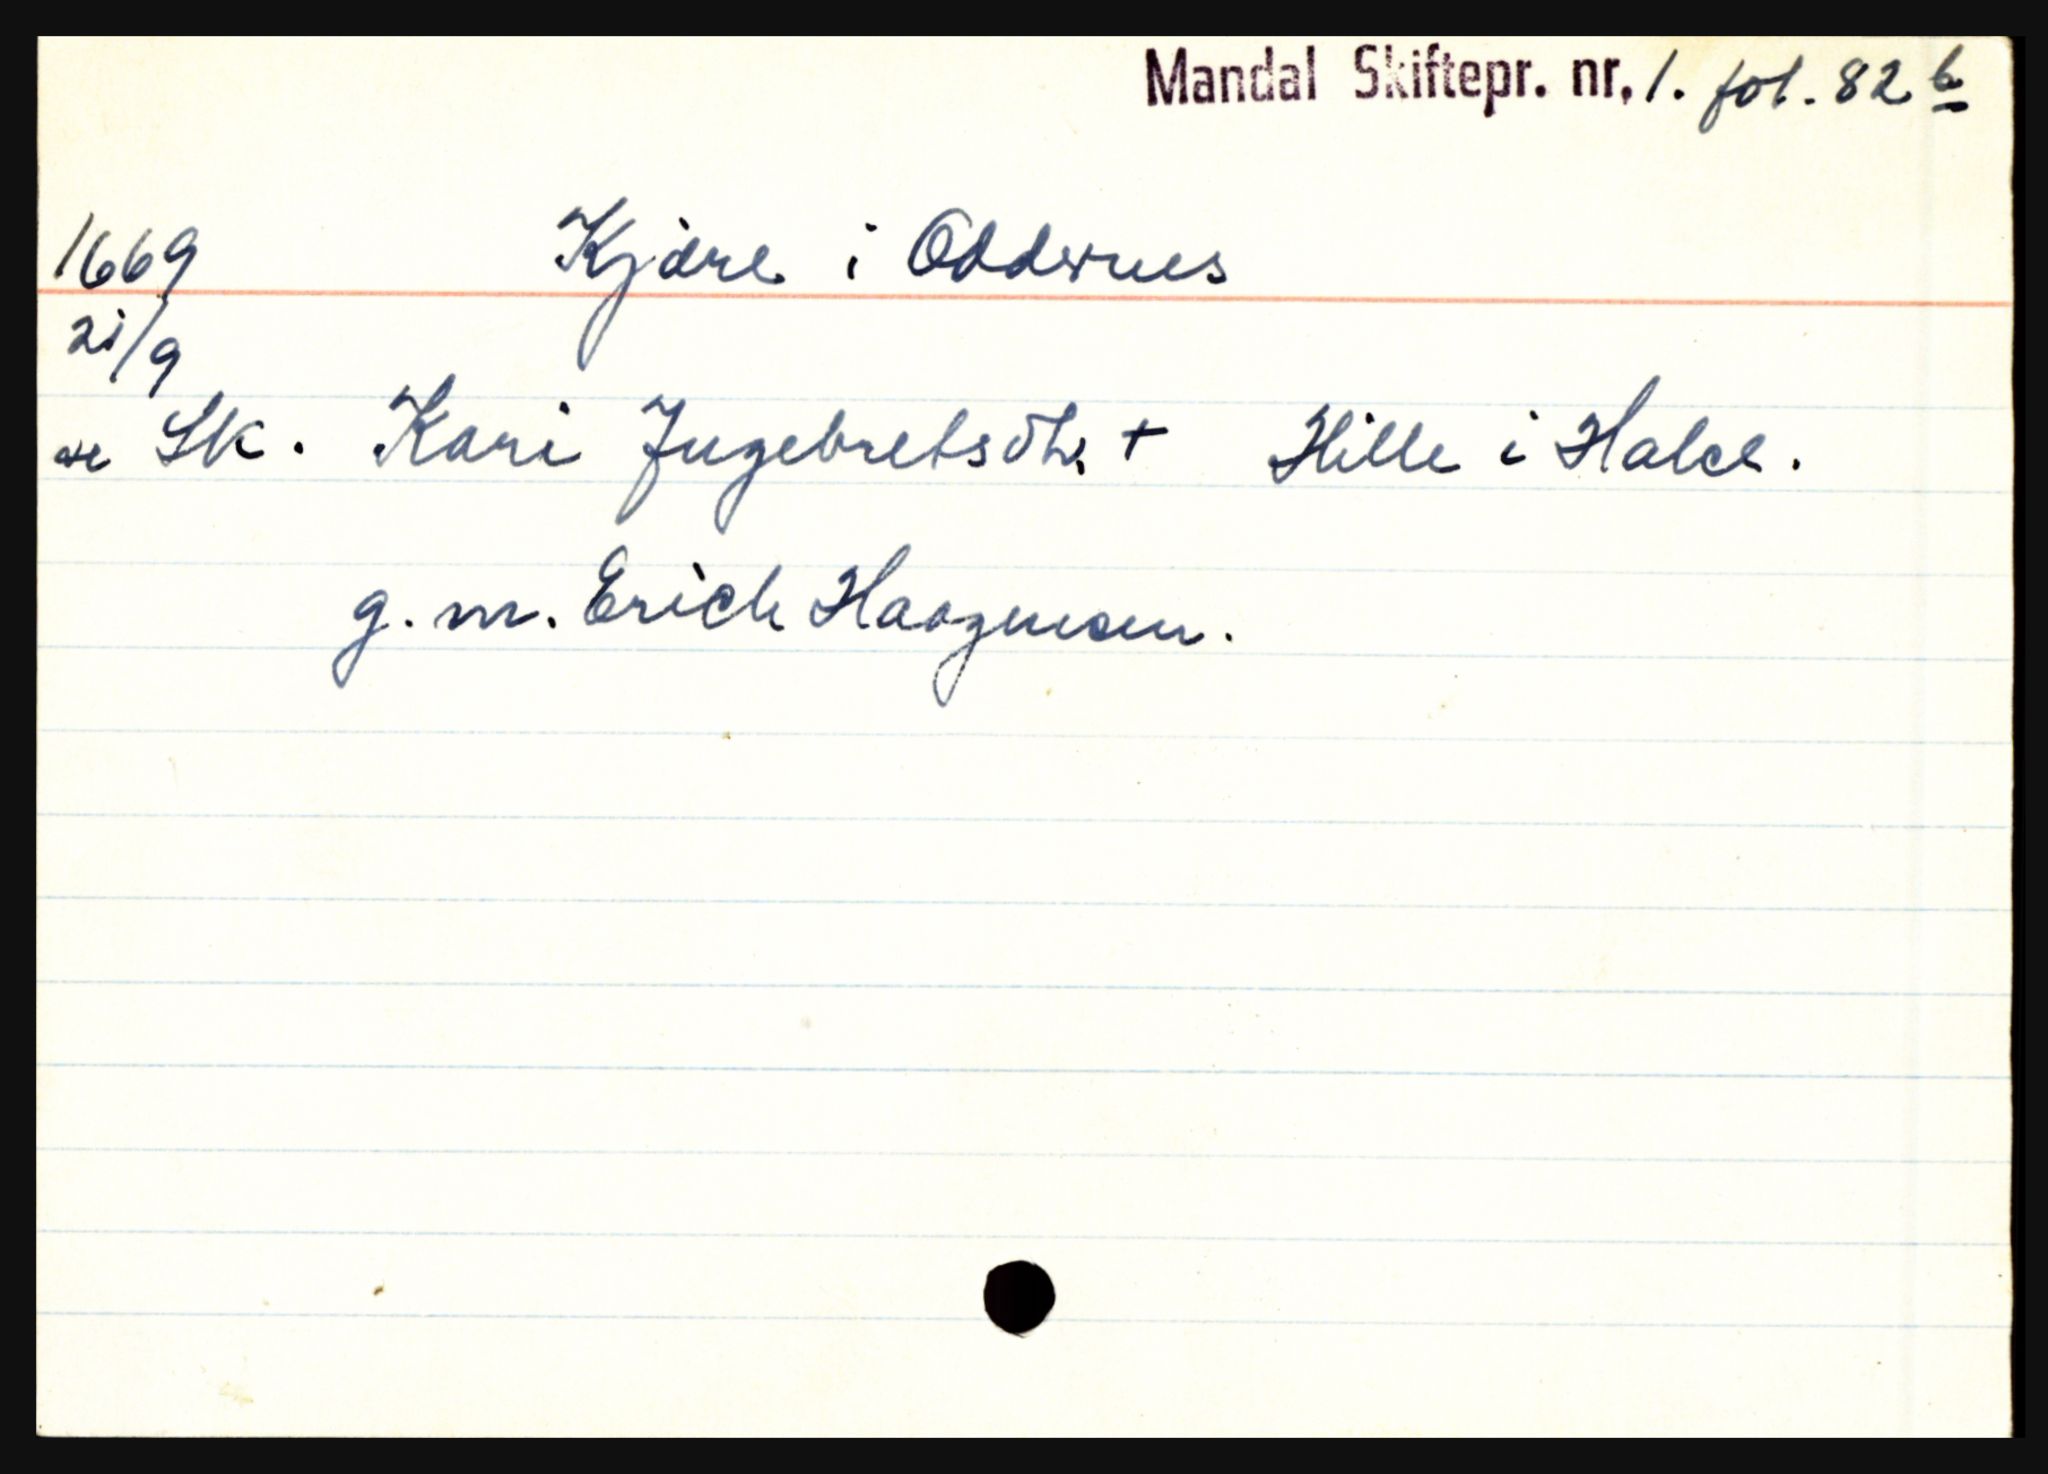 Mandal Skiftepr. nr. 1. fol. 82 b
1669 Kjære i Oddernes
21/9
Sk. Kari Ingebretsdtr. + Hille i Halse.
g. m. Erich Haagensen.